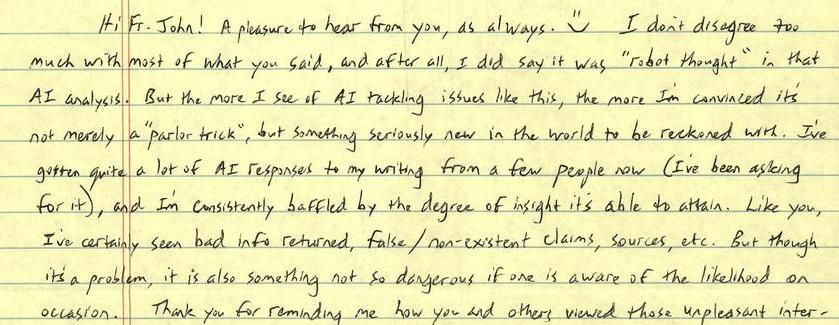 Hi Fr. John! A pleasure to hear from you, as always. I don't disagree too
much with most of what you said, and after all, I did say it was "robot thought" in that
AI analysis. But the more I see of AI tackling issues like this, the more I'm convinced it's
not merely a "parlor trick", but something seriously new in the world to be reckoned with. I've
gotten quite a lot of AI responses to my writing from a few people now (I've been asking
for it), and I'm consistently baffled by the degree of insight it's able to attain. Like you,
I've certainly seen bad info returned, false/non-existent claims, sources, etc. But though
it's a problem, it is also something not so dangerous if one is aware of the likelihood on
occasion. Thank you for reminding me how you and others viewed those unpleasant inter-